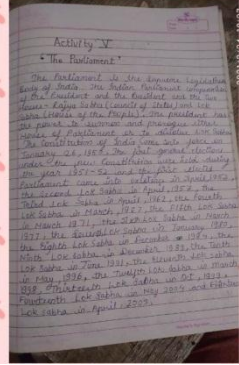 Activity "V"
"The Parliament"
The Parliament is the supreme legislative
Body of India. The Indian Parliament
of the President and the two
Houses - Rajya Sabha (Council of States) and Lok
Sabha (House of the People). The president has
the power to summon and prorogue either
House of Parliament or to dissolve Lok Sabha.
The Constitution of India came into force on
January 26, 1950. The first general elections
under the new Constitution were held during
the year 1951-52 and the first elected
Parliament came into existence in April 1952,
the Second Lok Sabha in April, 1957, the
Third Lok Sabha in April 1962, the Fourth
Lok Sabha in March, 1967, the Fifth Lok Sabha
in March 1971, the Sixth Lok Sabha in March
1977, the Seventh Lok Sabha in January, 1980,
the Eighth Lok Sabha in December 1984, the
Ninth Lok Sabha in December, 1989, the Tenth
Lok Sabha in June, 1991, the Eleventh Lok Sabha
in May, 1996, the Twelfth Lok Sabha in March
Thirteenth Lok Sabha in
Fourteenth Lok Sabha in May 2004 and
Lok Sabha in April